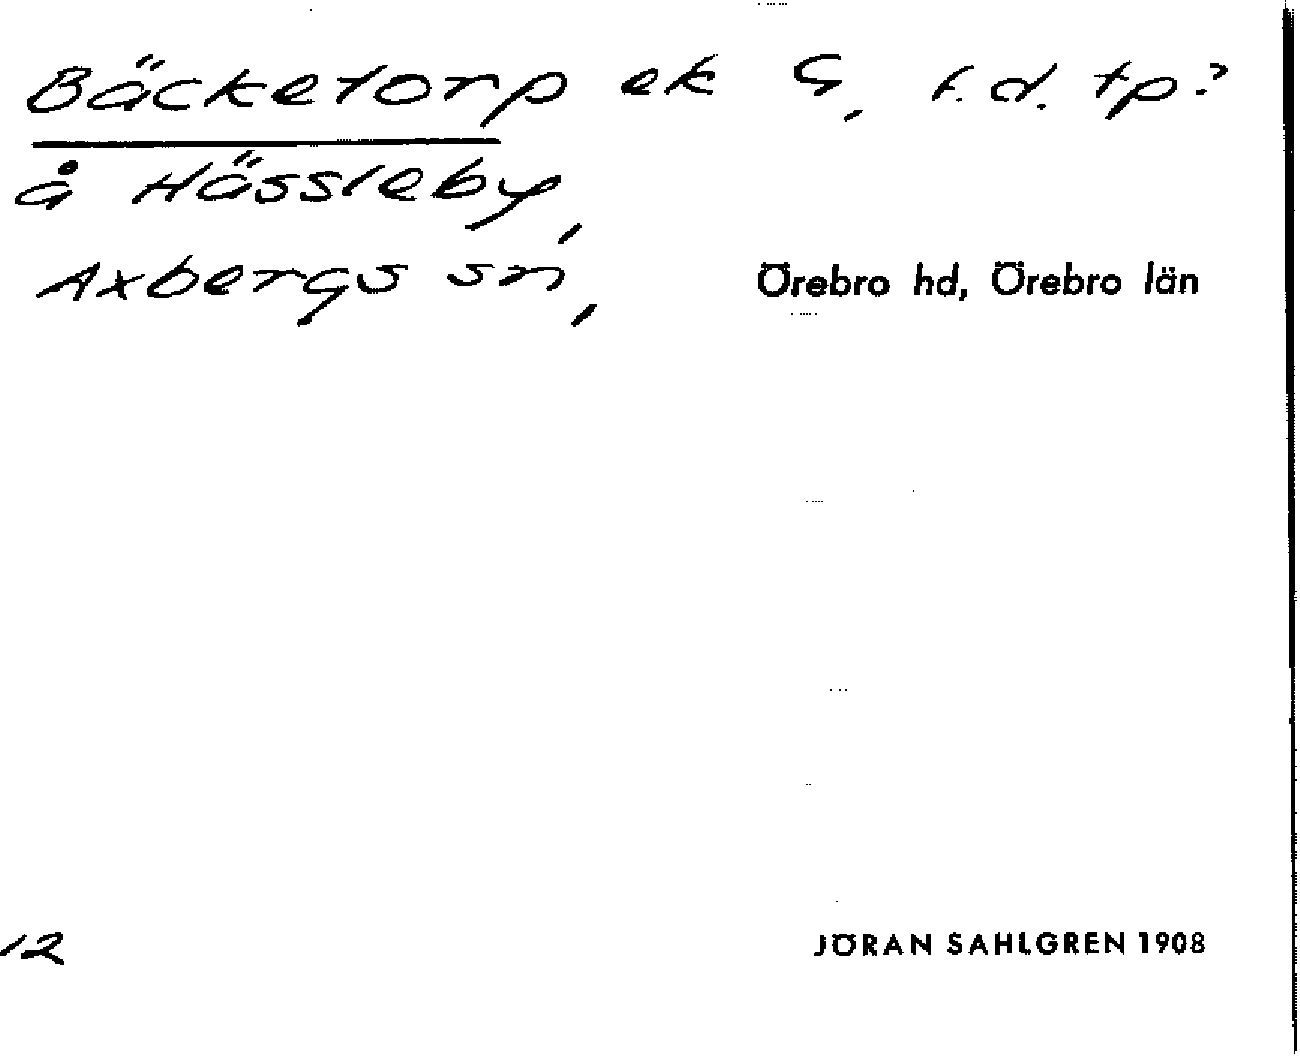 Bäcketorp ek G, f.d. tp?
å Hässleby,
Axbergs sn, Örebro hd, Örebro län
12 JÖRAN SAHLGREN 1908